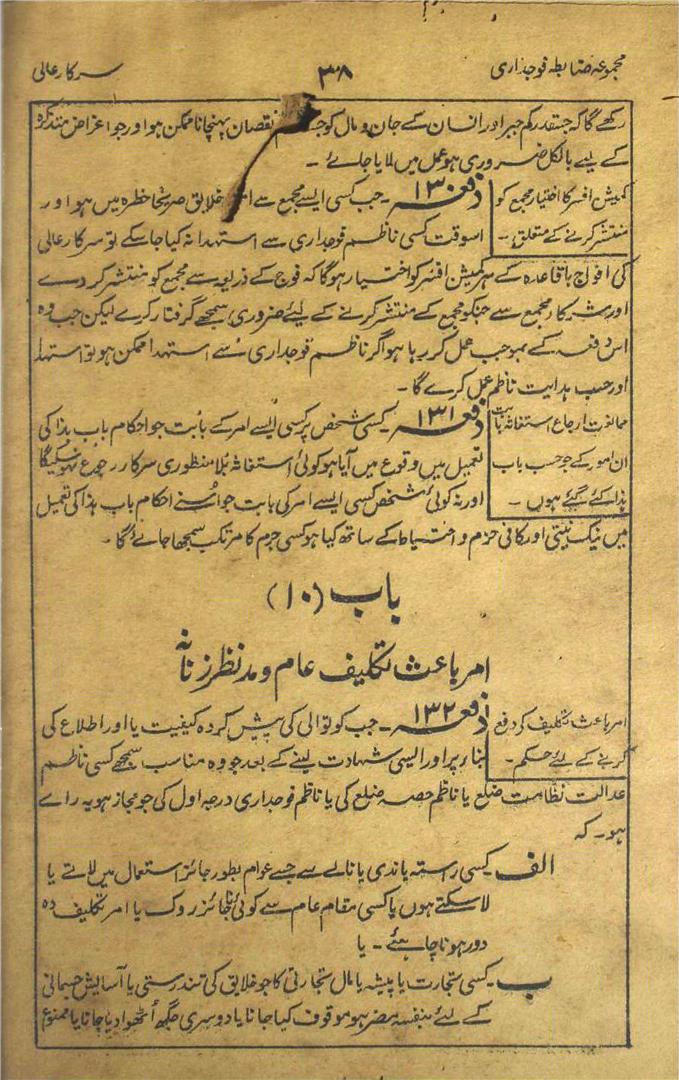 مجموعہ ضابطہ فوجداری
۳۸
سرکار عالی
رکھے گا کہ جسقدر کم جبر اور انسان کے جان و مال کو نقصان پہنچانا ممکن ہو اور جو اغراض متذکرہ
کے لیے بالکل ضروری ہو عمل میں لایا جائے ۔
کمیشن افسر کا اختیار مجمع کو
منتشر کرنے کے متعلق ۔
دفعہ ۱۳۰ ۔ جب کسی ایسے مجمع سے خلایق صریحاً خطرہ میں ہو اور
اسوقت کسی ناظم فوجداری سے استہدا نہ کیا جا سکے تو سرکار عالی
کی افواج باقاعدہ کے ہر کمیشن افسر کو اختیار ہوگا کہ فوج کے ذریعہ سے مجمع کو منتشر کر دے
اور شرکاء مجمع سے جنکو مجمع کے منتشر کرنے کے لیئے ضروری سمجھے گرفتار کرے لیکن جب وہ
اس دفعہ کے بموجب عمل کر رہا ہو اگر ناظم فوجداری سے استہدا ممکن ہو تو استہدا
اور حسب ہدایت ناظم عمل کرے گا ۔
ممانعت ارجاع استغاثہ بابت
ان امور کے جو حسب باب
ہذا کئے گئے ہوں ۔
دفعہ ۱۳۱ ۔ کسی شخص پر کسی ایسے امر کے بابت جو احکام باب ہذا کی
تعمیل میں وقوع میں آیا ہو کوئی استغاثہ بلا منظوری سرکار رجوع نہو سکیگا
اور نہ کوئی شخص کسی ایسے امر کی بابت جو اسنے احکام باب ہذا کی تعمیل
میں نیک نیتی اور کافی حزم و احتیاط کے ساتھ کیا ہو کسی جرم کا مرتکب سمجھا جائے گا ۔
باب (۱۰)
امر باعث تکلیف عام و مدنظر زنانہ
امر باعث تکلیف کو دفع
کرنے کے لیئے حکم ۔
دفعہ ۱۳۲ ۔ جب کوتوالی کی پیش کردہ کیفیت یا اور اطلاع کی
بناء پر اور ایسی شہادت لینے کے بعد جو وہ مناسب سمجھے کسی ناظم
عدالت نظامت ضلع یا ناظم حصہ ضلع کی یا ناظم فوجداری درجہ اول کی جو مجاز ہو یہ رائے
ہو ۔ کہ
الف ۔ کسی راستہ یا ندی یا نالے سے جسے عوام بطور جائز استعمال میں لاتے یا
لا سکتے ہوں یا کسی مقام عام سے کوئی ناجائز روک یا امر تکلیف دہ
دور ہونا چاہیئے ۔ یا
ب ۔ کسی تجارت یا پیشہ یا مال تجارتی کا جو خلایق کی تندرستی یا آسایش جسمانی
کے لیئے بنفسہ مضر ہو موقوف کیا جانا یا دوسری جگہ اُٹھوا دیا جانا یا ممنوع